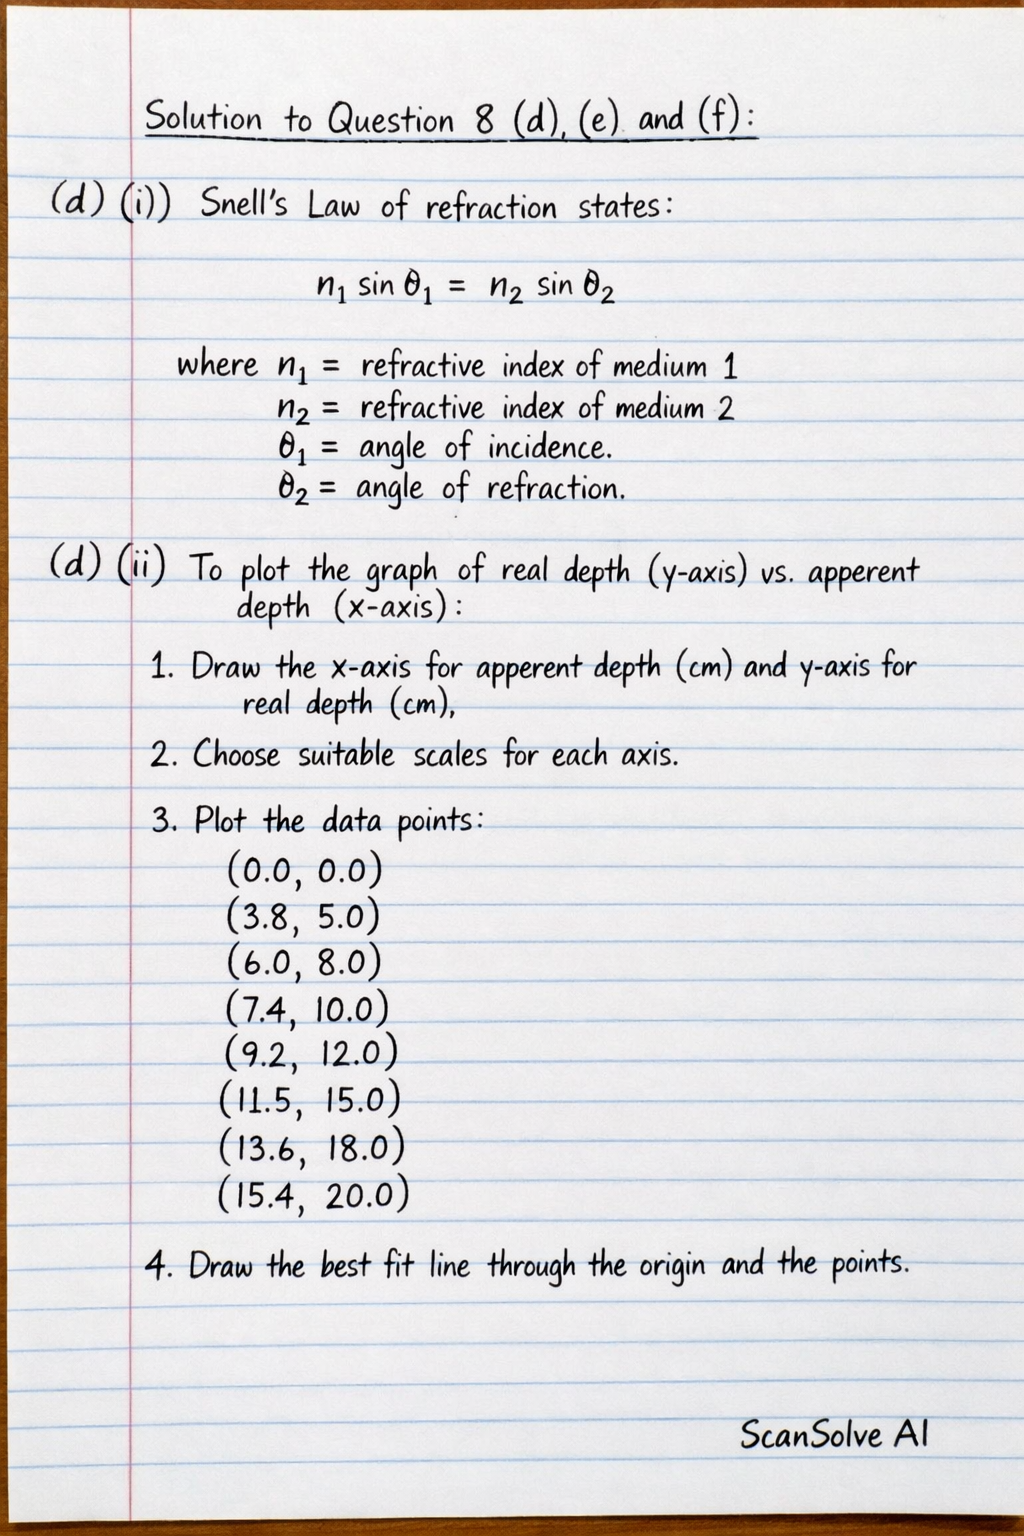 Solution to Question 8 (d), (e) and (f):
(d) (i)) Snell's Law of refraction states:
n₁ sin θ₁ = n₂ sin θ₂
where n₁ = refractive index of medium 1
n₂ = refractive index of medium 2
θ₁ = angle of incidence.
θ₂ = angle of refraction.
(d) (ii) To plot the graph of real depth (y-axis) vs. apperent
depth (x-axis):
1. Draw the x-axis for apperent depth (cm) and y-axis for
real depth (cm),
2. Choose suitable scales for each axis.
3. Plot the data points:
(0.0, 0.0)
(3.8, 5.0)
(6.0, 8.0)
(7.4, 10.0)
(9.2, 12.0)
(11.5, 15.0)
(13.6, 18.0)
(15.4, 20.0)
4. Draw the best fit line through the origin and the points.
ScanSolve AI